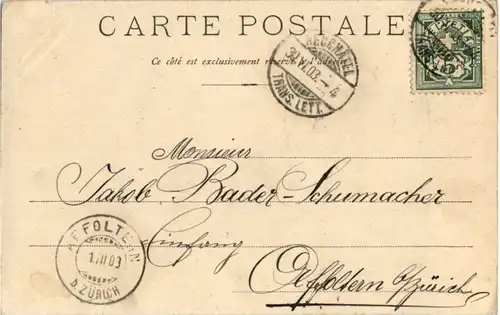 CARTE POSTALE
Ce côté est exclusivement réservé à l'adresse
NEUCHATEL
30.IV.03.-4
TRANS. LETT.
Monsieur
Jakob Bader-Schumacher
Einfang
Affoltern b/Zürich
AFFOLTERN
1.III.03
b. ZÜRICH